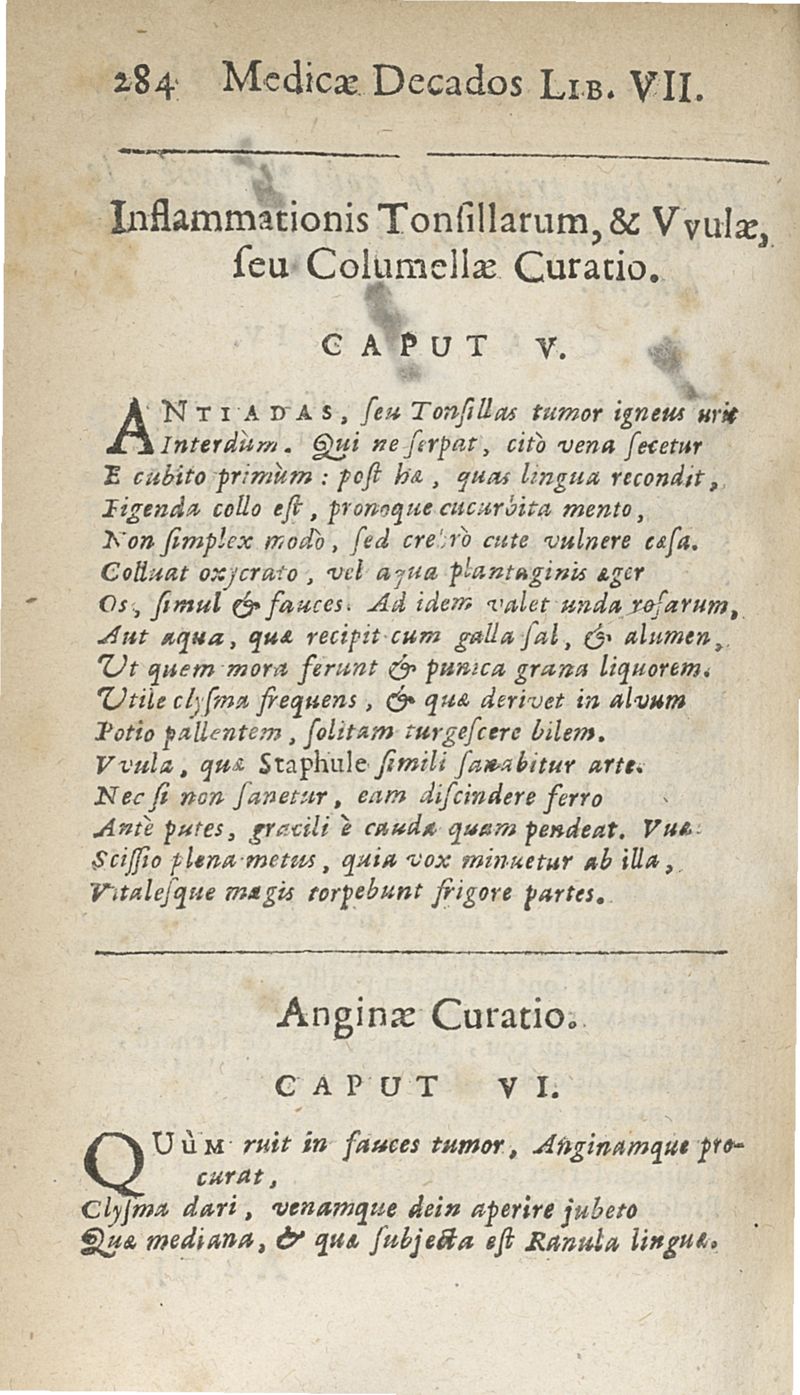 284 Medicæ Decados LIB. VII.
Inflammationis Tonſillarum, & Vvulæ,
ſeu Columellæ Curatio.
CAPUT V.
ANTIADAS, ſeu Tonſillas tumor igneus urit
Interdùm. Qui ne ſerpat, citò vena ſecetur
E cubito primùm: poſt hæ, quas lingua recondit,
Figenda collo eſt, pronoque cucurbita mento,
Non ſimplex modò, ſed crebrò cute vulnere cæſa.
Colluat oxycrato, vel aqua plantaginis æger
Os, ſimul & fauces. Ad idem valet unda roſarum,
Aut aqua, quæ recipit cum galla ſal, & alumen,
Ut quem mora ferunt & punica grana liquorem.
Utile clyſma frequens, & quæ derivet in alvum
Potio pallentem, ſolitam turgeſcere bilem.
Vvula, quæ Staphule ſimili ſanabitur arte.
Nec ſi non ſanetur, eam diſcindere ferro
Antè putes, gracili è cauda quam pendeat. Vuæ
Sciſſio plena metus, quia vox minuetur ab illa,
Vitaleſque magis torpebunt frigore partes.
Anginæ Curatio.
CAPUT VI.
QUÙM ruit in fauces tumor, Anginamque pro-
curat,
Clyſma dari, venamque dein aperire jubeto
Quæ mediana, & quæ ſubjecta eſt Ranula linguæ.